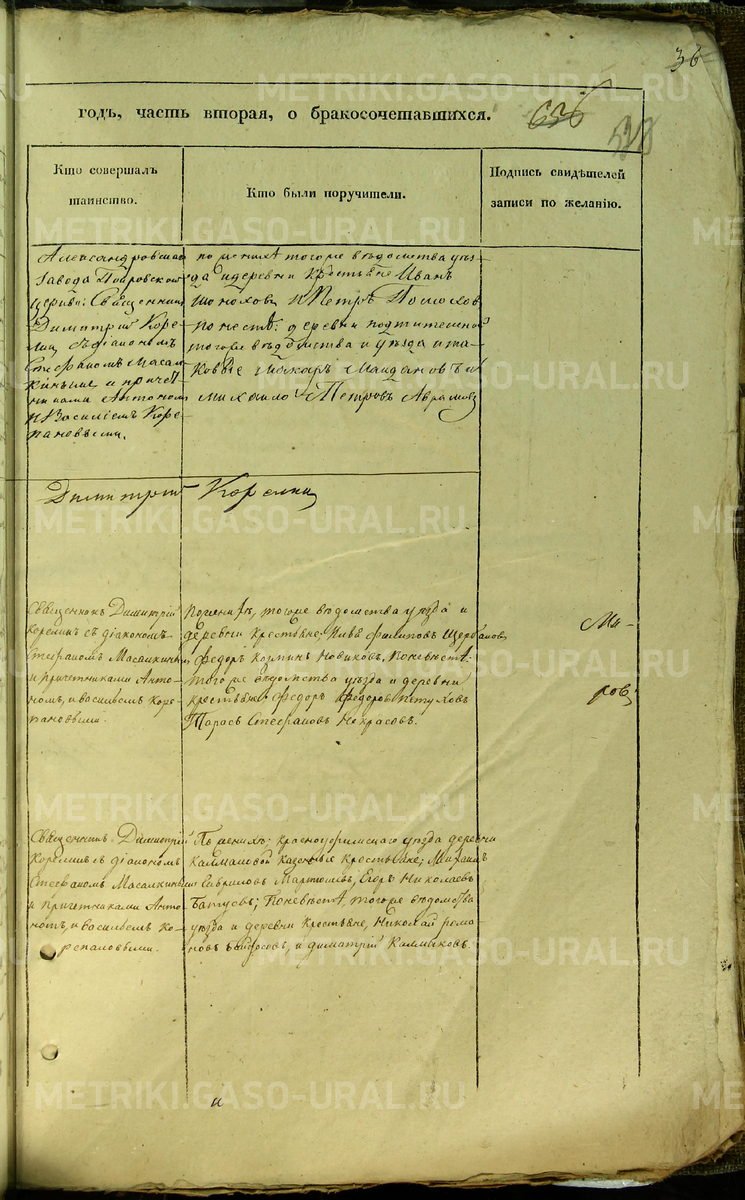 36
годъ, часть вторая, о бракосочетавшихся.
636
Кто совершалъ
таинство.
Кто были поручители.
Подпись свидѣтелей
записи по желанію.
Александровскаго
завода Покровской
церкви: Священникъ
Димитрій Коре
лин съ діакономъ
Стефаномъ Масал
кинымъ и причет
никами Антономъ
и Василіемъ Коре
пановыми.
по женихѣ тогоже вѣдомства уѣз
да и деревни Крестьяне Иванъ
и Петръ
по невѣстѣ: деревни
тогоже вѣдомства и уѣзда
Макаръ
Михайло Петровъ
Димитрій Корелин
Священикъ Димитрій
Корелинъ съ діакономъ
Стефаномъ Масалкины
и причетниками Анто
номъ, и васильемъ Коре
пановыми.
По женихѣ, тогоже вѣдомства уѣзда и
деревни крестьяне; Филиповъ Щербаковъ
Федоръ Козминъ Новиковъ, Поневѣстѣ:
тогоже вѣдомства уѣзда и деревни
крестьяне Федоръ Федоровъ Пѣтуховъ
Тарасъ Стефановъ Некрасовъ.
Ми-
ровъ
Священникъ Димитрій
Корелинъ съ діакономъ
Стефаномъ Масалкинымъ
и причетниками Анто
номъ, и васильемъ Ко-
репановыми.
По женихѣ; красноуфимскаго уѣзда деревни
Калмаковой казенные крестьяне; Михаилъ
Гавриловъ Мартюшевъ, Егоръ Николаевъ
Батуевъ; Поневѣстѣ, тогоже вѣдомства
уѣзда и деревни крестьяне, Николай рома
новъ и димитрій Калмыковъ.
METRIKI.GASO-URAL.RU